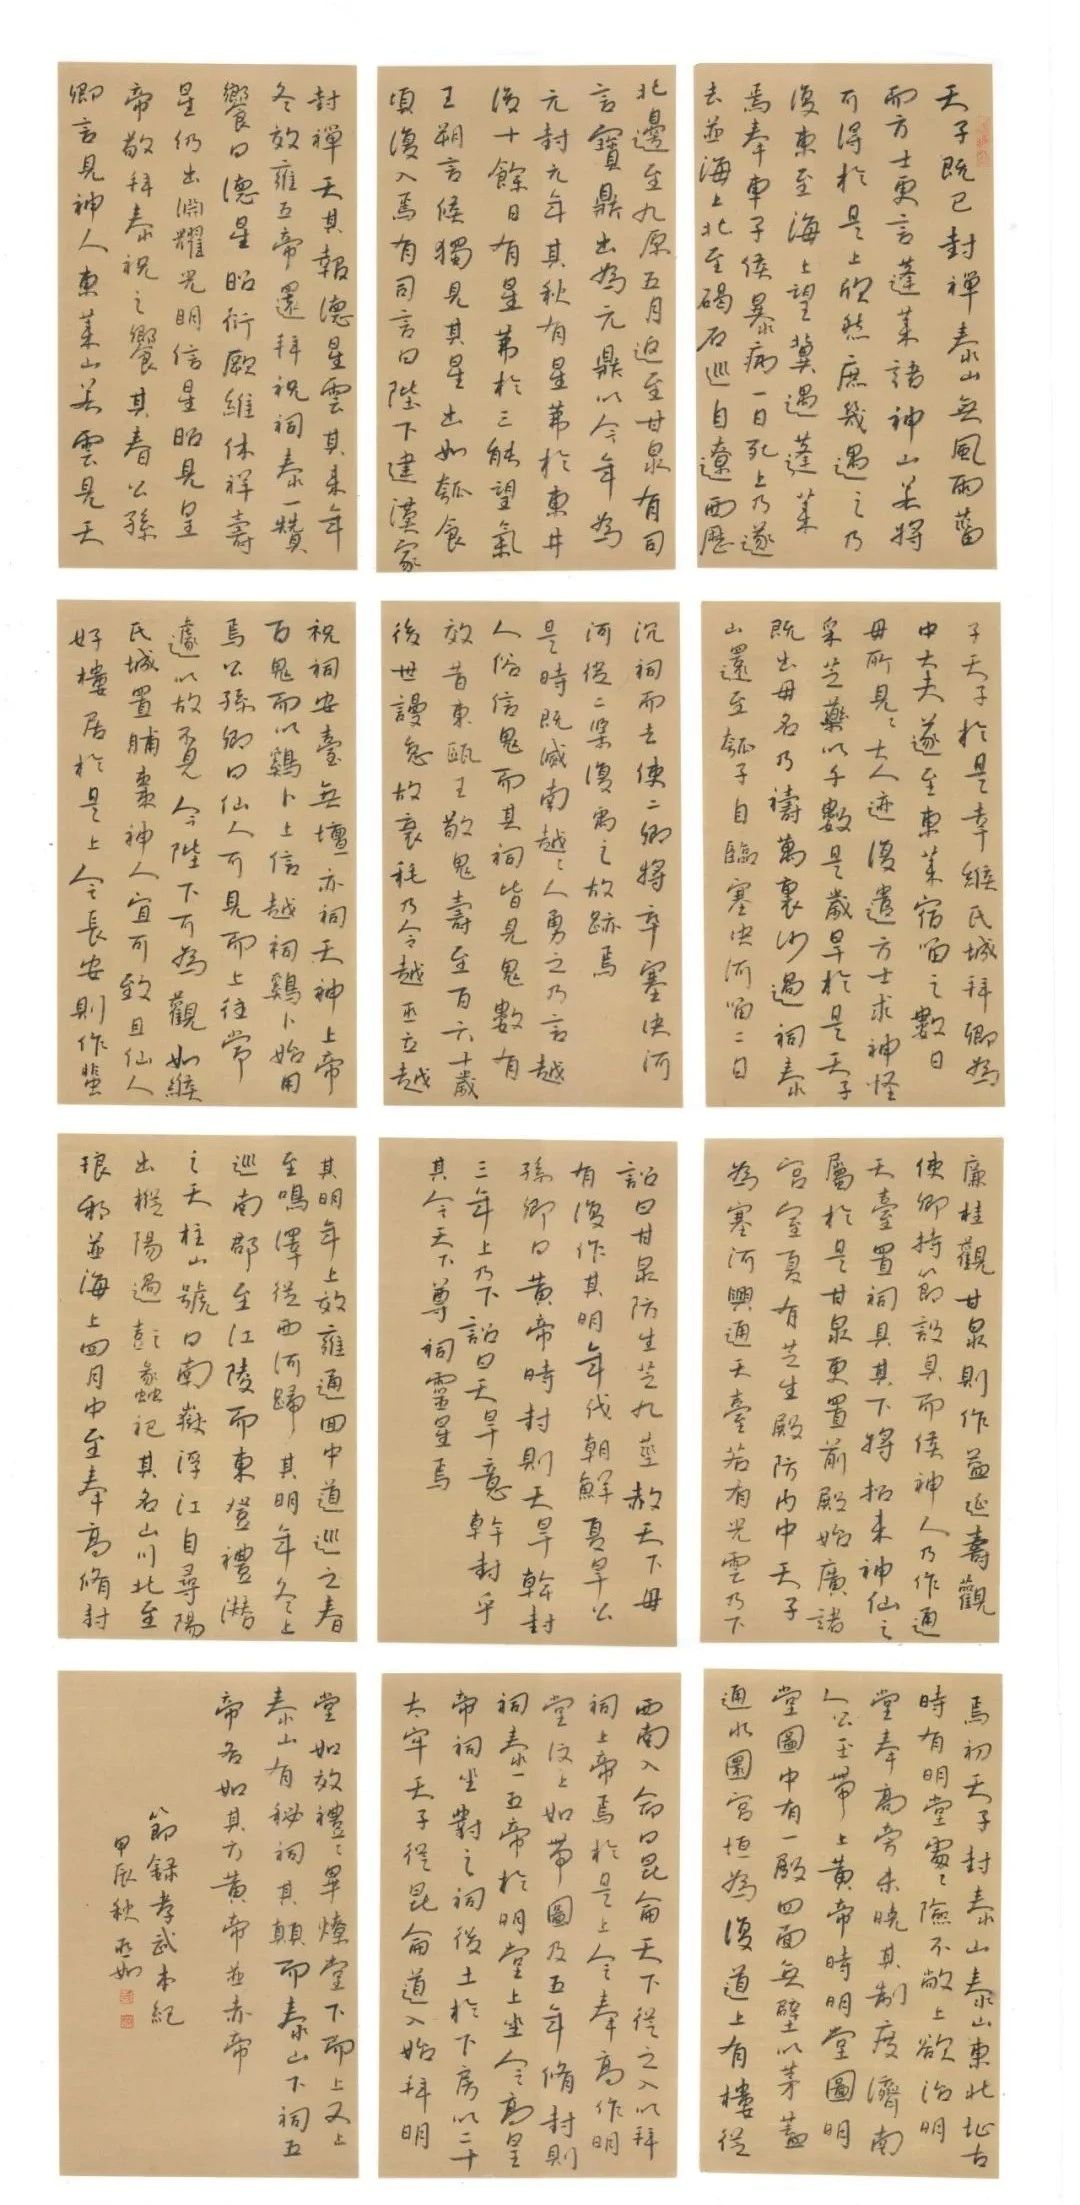 天子既已封禪泰山無風雨菑
而方士更言蓬萊諸神山若將
可得於是上欣然庶幾遇之乃
復東至海上望冀遇蓬萊
焉奉車子侯暴病一日死上乃遂
去並海上北至碣石巡自遼西歷
北邊至九原五月返至甘泉有司
言寶鼎出為元鼎以今年為
元封元年其秋有星茀於東井
後十餘日有星茀於三能望氣
王朔言候獨見其星出如瓠食
頃復入焉有司言曰陛下建漢家
封禪天其報德星雲其來年
冬效雍五帝還拜祝祠泰一贊
饗曰德星昭衍厥維休祥壽
星仍出淵耀光明信星昭見皇
帝敬拜泰祝之饗其春公孫
卿言見神人東萊山若雲見天
子天子於是幸緱氏城拜卿為
中大夫遂至東萊宿留之數日
毋所見〻大人迹復遣方士求神怪
采芝藥以千數是歲旱於是天子
既出毋名乃禱萬裏沙過祠泰
山還至瓠子自臨塞決河留二日
沉祠而去使二卿將卒塞決河
河徙二渠復禹之故跡焉
是時既滅南越〻人勇之乃言越
人俗信鬼而其祠皆見鬼數有
效昔東甌王敬鬼壽至百六十歲
後世謾怠故衰秏乃令越巫立越
祝祠安臺無壇亦祠天神上帝
百鬼而以雞卜上信越祠雞卜始用
焉公孫卿曰仙人可見而上往常
遽以故不見今陛下可為觀如緱
氏城置脯棗神人宜可致且仙人
好樓居於是上令長安則作蜚
廉桂觀甘泉則作益延壽觀
使卿持節設具而候神人乃作通
天臺置祠具其下將招來神仙之
屬於是甘泉更置前殿始廣諸
宮室夏有芝生殿防內中天子
為塞河興通天臺若有光雲乃下
詔曰甘泉防生芝九莖赦天下毋
有復作其明年伐朝鮮夏旱公
孫卿曰黃帝時封則天旱乾封
三年上乃下詔曰天旱意乾封乎
其令天下尊祠靈星焉
其明年上效雍通回中道巡之春
至鳴澤從西河歸其明年冬上
巡南郡至江陵而東登禮潛
之天柱山號曰南嶽浮江自尋陽
出樅陽過彭蠡祀其名山川北至
琅邪並海上四月中至奉高脩封
焉初天子封泰山泰山東北阯古
時有明堂處〻險不敞上欲治明
堂奉高旁未曉其制度濟南
人公玊帶上黃帝時明堂圖明
堂圖中有一殿四面無壁以茅蓋
通水圜宮垣為復道上有樓從
西南入命曰昆侖天下從之入以拜
祠上帝焉於是上令奉高作明
堂汶上如帶圖及五年脩封則
祠泰一五帝於明堂上坐令高皇
帝祠坐對之祠後土於下房以二十
太牢天子從昆侖道入始拜明
堂如效禮〻畢燎堂下而上又上
泰山有秘祠其顛而泰山下祠五
帝各如其方黃帝並赤帝
節錄孝武本紀
甲辰秋